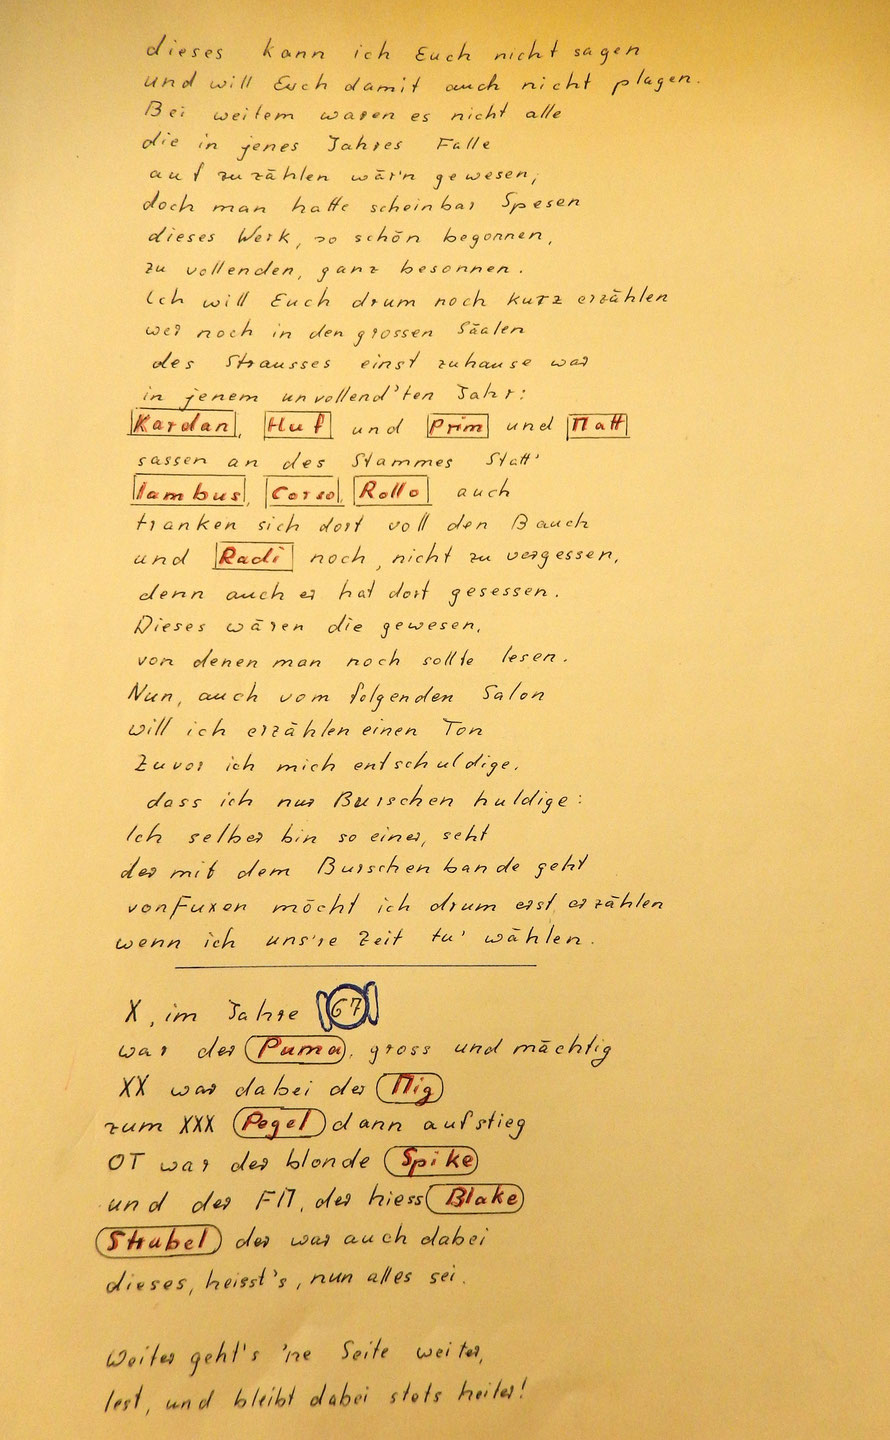 dieses kann ich Euch nicht sagen
und will Euch damit auch nicht plagen.
Bei weitem waren es nicht alle
die in jenes Jahres Falle
auf zu zählen wär'n gewesen,
doch man hatte scheinbar Spesen
dieses Werk, so schön begonnen,
zu vollenden, ganz besonnen.
Ich will Euch drum noch kurz erzählen
wer noch in den grossen Säalen
des Strausses einst zuhause war
in jenem unvollend'ten Jahr:
Kardan, Huf und Prim und Matt
sassen an des Stammes Statt'
Iambus, Corso, Rollo auch
tranken sich dort voll den Bauch
und Radi noch, nicht zu vergessen,
denn auch er hat dort gesessen.
Dieses wären die gewesen,
von denen man noch sollte lesen.
Nun, auch vom folgenden Salon
will ich erzählen einen Ton
Zuvor ich mich entschuldige,
dass ich nur Burschen huldige:
Ich selber bin so einer, seht
der mit dem Burschenbande geht
von Fuxen möcht ich drum erst erzählen
wenn ich uns're Zeit tu' wählen.
X, im Jahre 67
war der Puma, gross und mächtig
XX war dabei der Mig
zum XXX Pegel dann aufstieg
OT war der blonde Spike
und der FM, der hiess Blake
Strubel der war auch dabei
dieses, heisst's, nun alles sei.
Weiter geht's 'ne Seite weiter,
lest, und bleibt dabei stets heiter!